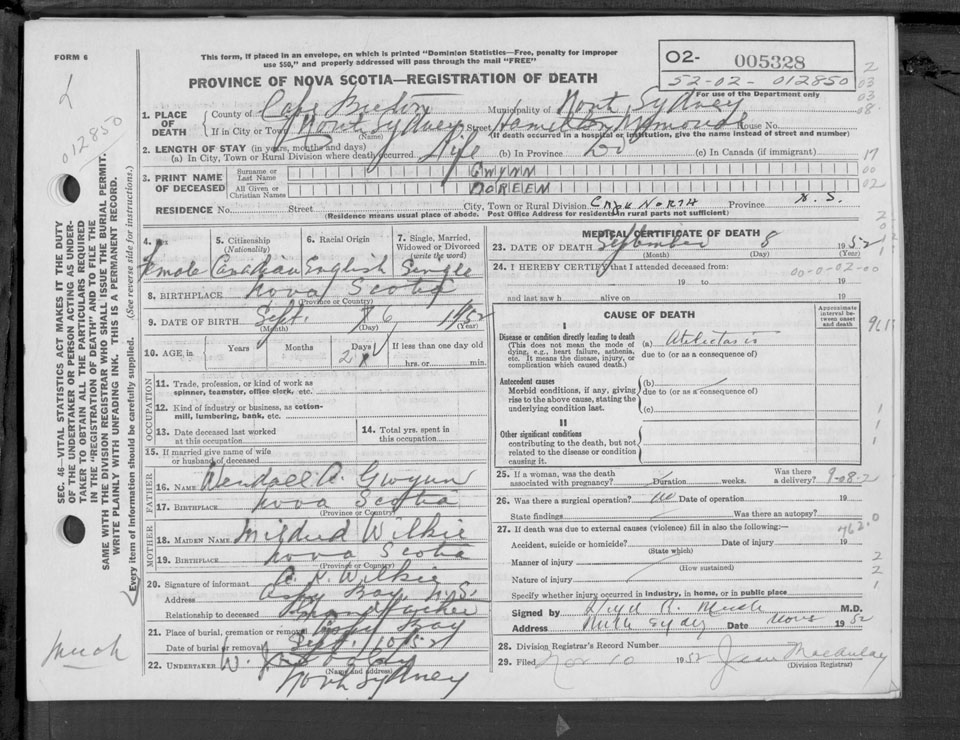 FORM 6
This form, if placed in an envelope, on which is printed "Dominion Statistics—Free, penalty for improper
use $50," and properly addressed will pass through the mail "FREE"
PROVINCE OF NOVA SCOTIA—REGISTRATION OF DEATH
02- 005328
52-02- 012850
For use of the Department only
012850
1. PLACE OF DEATH
County of Cape Breton Municipality of North Sydney
If in City or Town North Sydney Street Hamilton Memorial House No.
(Name) (If death occurred in a hospital or institution, give the name instead of street and number)
2. LENGTH OF STAY (in years, months and days)
(a) In City, Town or Rural Division where death occurred Life (b) In Province Do (c) In Canada (if immigrant)
3. PRINT NAME OF DECEASED
Surname or Last Name GWYNN
All Given or Christian Names DOREEN
RESIDENCE No. Street City, Town or Rural Division CAPE NORTH Province N.S.
(Residence means usual place of abode. Post Office Address for residents in rural parts not sufficient)
4. Sex Female
5. Citizenship (Nationality) Canadian
6. Racial Origin English
7. Single, Married, Widowed or Divorced (write the word) Single
8. BIRTHPLACE Nova Scotia
(Province or Country)
9. DATE OF BIRTH Sept. 6 1952
(Month) (Day) (Year)
10. AGE in Years Months Days 2 If less than one day old
hrs. or min.
OCCUPATION
11. Trade, profession, or kind of work as
spinner, teamster, office clerk, etc.
12. Kind of industry or business, as cotton-
mill, lumbering, bank, etc.
13. Date deceased last worked
at this occupation
14. Total yrs. spent in
this occupation
15. If married give name of wife
or husband of deceased
FATHER
16. NAME Wendall A. Gwynn
17. BIRTHPLACE Nova Scotia
(Province or Country)
MOTHER
18. MAIDEN NAME Mildred Wilkie
19. BIRTHPLACE Nova Scotia
(Province or Country)
20. Signature of informant Wilkie
Address Aspy Bay, N.S.
Relationship to deceased Grandfather
21. Place of burial, cremation or removal Aspy Bay
Date of burial or removal Sept. 10/52
22. UNDERTAKER W. J.
(Name and address)
North Sydney
MEDICAL CERTIFICATE OF DEATH
23. DATE OF DEATH September 8 1952
(Month) (Day) (Year)
24. I HEREBY CERTIFY that I attended deceased from:
00-0-02-00
19 to 19
and last saw h alive on 19
CAUSE OF DEATH
Approximate interval between onset and death
I
Disease or condition directly leading to death
(This does not mean the mode of
dying, e.g., heart failure, asthenia,
etc. It means the disease, injury, or
complication which caused death.)
(a) Atelectasis
due to (or as a consequence of)
Antecedent causes
Morbid conditions, if any, giving
rise to the above cause, stating the
underlying condition last.
(b)
due to (or as a consequence of)
(c)
II
Other significant conditions
contributing to the death, but not
related to the disease or condition
causing it.
25. If a woman, was the death
associated with pregnancy? Duration weeks. Was there
a delivery?
26. Was there a surgical operation? no Date of operation 19
State findings Was there an autopsy?
27. If death was due to external causes (violence) fill in also the following:—
762.0
Accident, suicide or homicide? Date of injury 19
(State which)
Manner of injury
(How sustained)
Nature of injury
Specify whether injury occurred in industry, in home, or in public place
Signed by M.D.
Address North Sydney Date Nov 1952
28. Division Registrar's Record Number
29. Filed Nov. 10 1952 Jean MacAulay
(Division Registrar)
SEC. 46—VITAL STATISTICS ACT MAKES IT THE DUTY
OF THE UNDERTAKER OR PERSON ACTING AS UNDER-
TAKER TO OBTAIN ALL THE PARTICULARS REQUIRED
IN THE "REGISTRATION OF DEATH" AND TO FILE THE
SAME WITH THE DIVISION REGISTRAR WHO SHALL ISSUE THE BURIAL PERMIT.
WRITE PLAINLY WITH UNFADING INK. THIS IS A PERMANENT RECORD.
Every item of Information should be carefully supplied. (See reverse side for instructions.)